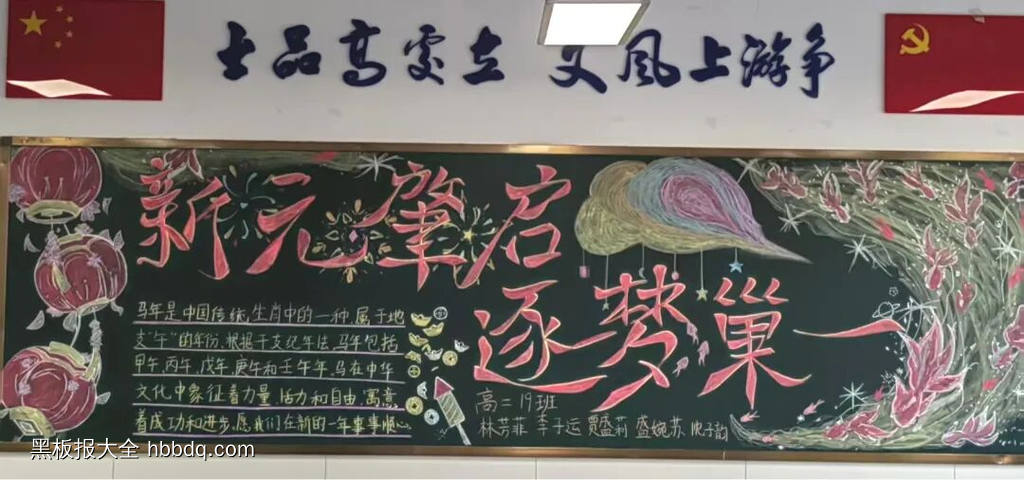 士品高处立 文风上游争
新元肇启
逐梦巢一
马年是中国传统生肖中的一种,属于地
支“午”的年份,根据干支纪年法,马年包括
甲午、丙午、戊午、庚午和壬午年,马在中华
文化中象征着力量、活力和自由,寓意
着成功和进步,愿我们在新的一年事事顺心
高二19班
林芸菲 李子运 贾盛莉 盛婉苏
黑板报大全 hbbdq.com